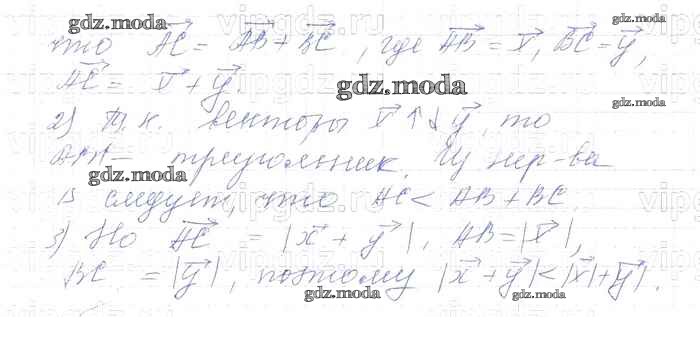 gdz.moda
что AC = AB + BC, где AB = x, BC = y,
gdz.moda
AC = x + y.
gdz.moda
gdz.moda
2) Т.к. векторы x ↑↓ y, то
треугольник. Из нер-ва
gdz.moda
gdz.moda
следует, что AC < AB + BC
3) Но AC = |x + y|, AB = |x|,
BC = |y|, поэтому |x + y| < |x| + |y|.
gdz.moda
gdz.moda